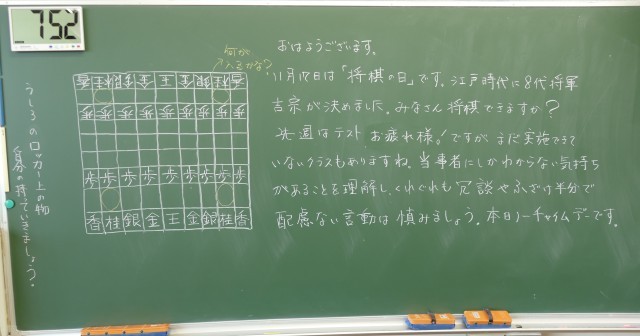 752
何が
入るかな?
おはようございます。
11月17日は「将棋の日」です。江戸時代に8代将軍
吉宗が決めました。みなさん将棋できますか?
先週はテストお疲れ様!ですが、まだ実施できて
いないクラスもありますね。当事者にしかわからない気持ち
があることを理解し、くれぐれも冗談やふざけ半分で
配慮ない言動は慎みましょう。本日ノーチャイムデーです。
香桂銀金王金銀桂香
歩歩歩歩歩歩歩歩歩
歩歩歩歩歩歩歩歩歩
香桂銀金王金銀桂香
うしろのロッカー上の物
各自の持っていきましょう。